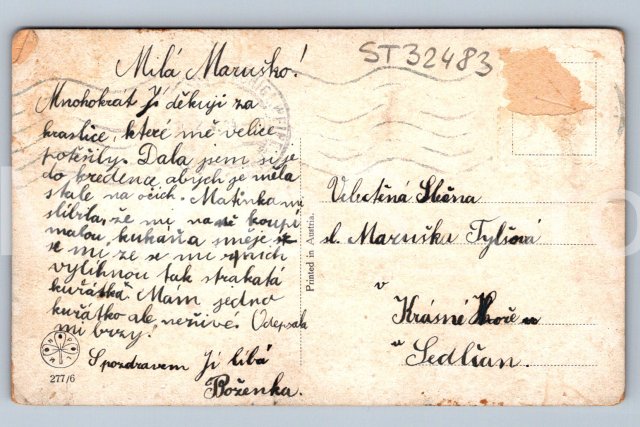 ST32483
Milá Maruško!
Mnohokrat Jí děkuji za
kraslice, které mě velice
potěšily. Dala jsem si je
do kredence abych je měla
stale na očích. Matinka mi
slíbila, že mi na ně koupí
malou kukáňa směje
se mi že se mi z nich
vylíhnou tak strakatá
kuřátka. Mám jedno
kuřátko ale neživé. Odepsala
mi brzy.
S pozdravem Jí líbá
Boženka.
277/6
Printed in Austria.
Velectěná Slečna
sl. Maruška Tylšová
v
Krásné Hoře
u Sedlčan.